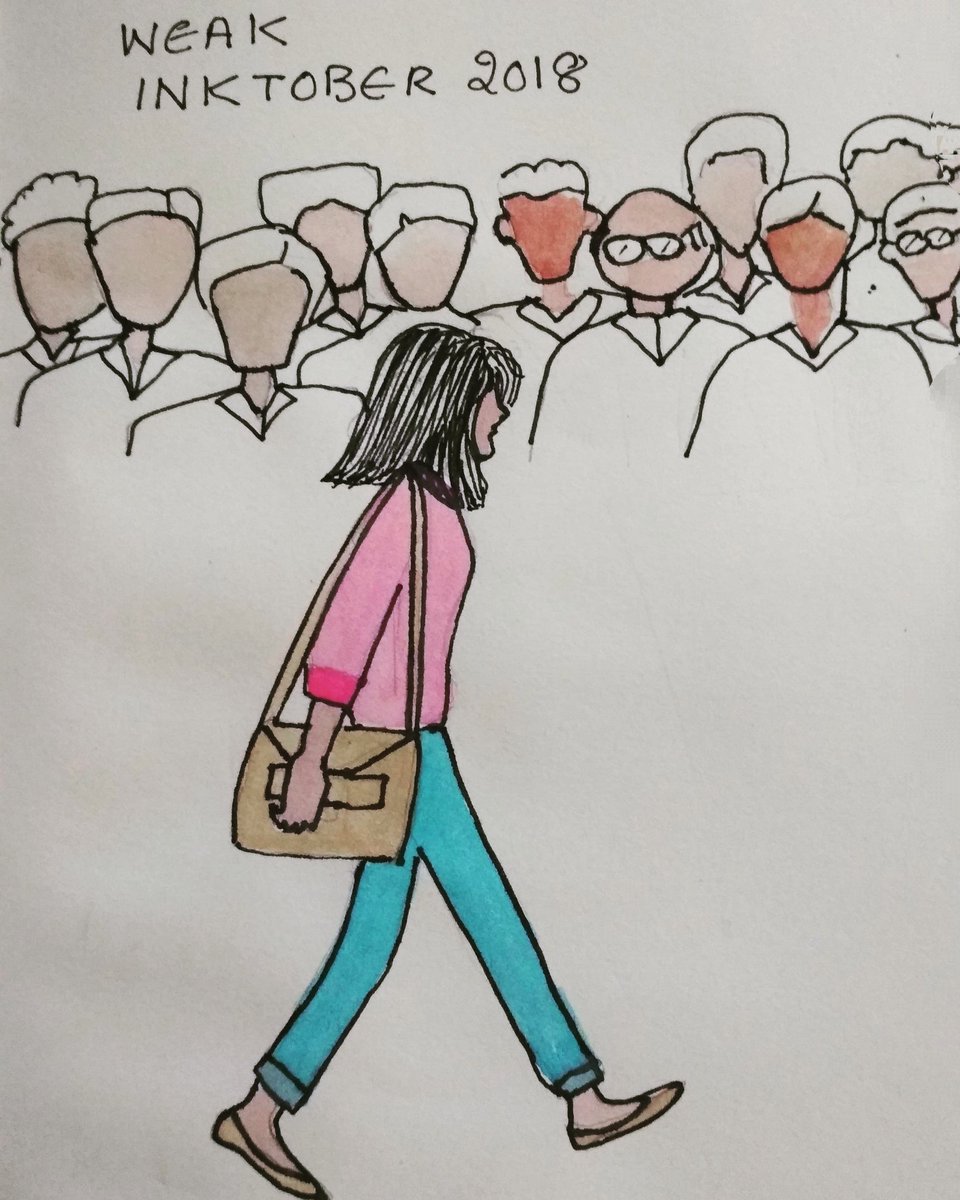 WEAK
INKTOBER 2018